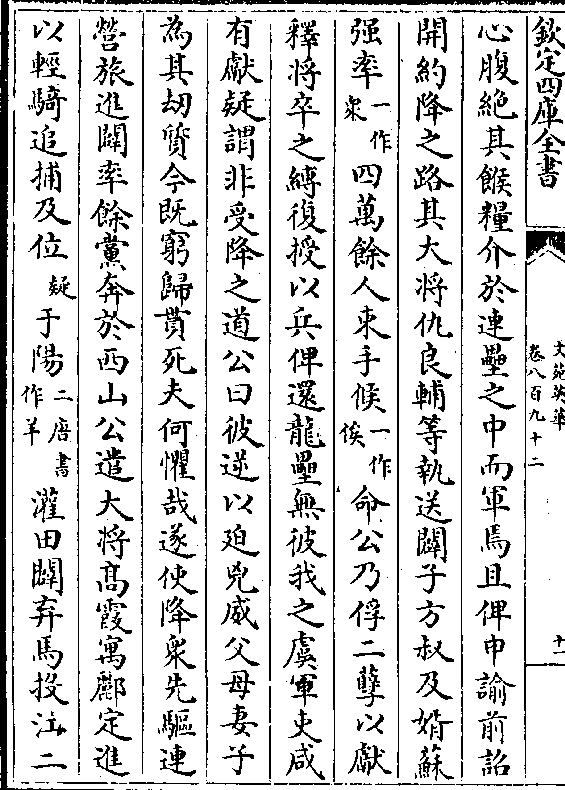 欽定四庫全書
文苑英華
卷八百九十二
十一
心腹絶其餱糧介於連壘之中而軍焉且俾申諭前詔
開約降之路其大将仇良輔等執送闢子方叔及婿蘇
强率一作衆四萬餘人束手候一作俟命公乃俘二孽以獻
釋将卒之縛復授以兵俾還龍壘無彼我之虞軍吏咸
有獻疑謂非受降之道公曰彼逆以廹兇威父母妻子
為其刼質今既窮歸貰死夫何懼哉遂使降衆先驅連
營旅進闢率餘黨奔於西山公遣大将髙霞寓酈定進
以輕騎追捕及位疑于陽二唐書作羊灌田闢弃馬投江二